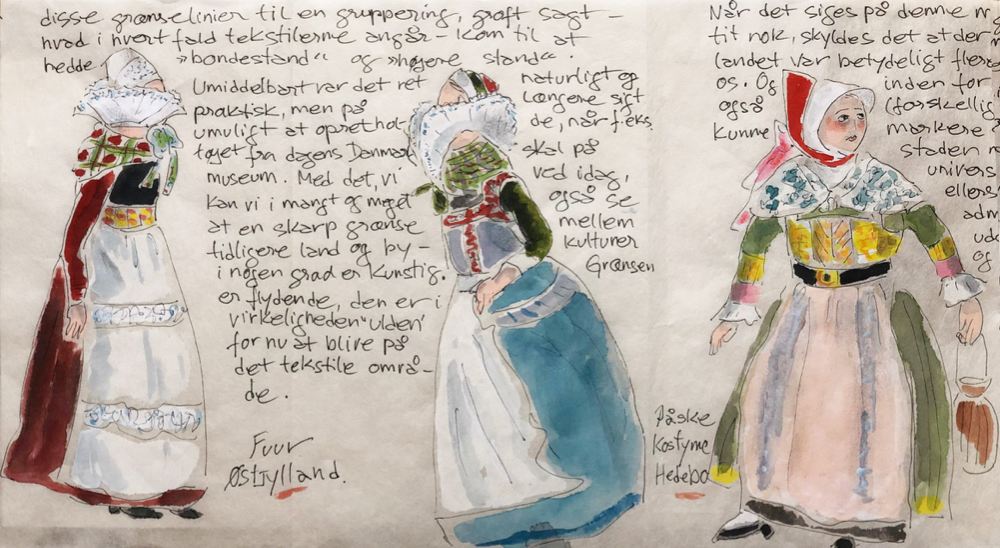 disse grænselinier til en gruppering, groft sagt –
hvad i hvert fald tekstilerne angår – kom til at
hedde "bondestand" og "højere stand".
Umiddelbart var det ret
praktisk, men på
umuligt at oprethol-
tøjet fra dagens Danmark
museum. Med det, vi
kan vi i mangt og meget
at en skarp grænse
tidligere land og by –
i nogen grad er kunstig.
er flydende, den er i
virkeligheden "ulden"
for nu at blive på
det tekstile områ-
de.
Fuur
Østjylland.
naturligt og
længere sigt
de, når f.eks.
skal på
ved idag,
også se
mellem
kulturer
Grænsen
Når det siges på denne
tit nok, skyldes det at der
landet var betydeligt flere
os. Og inden for
også (forskellig
kunne markere
staden
univers
ellers
adm
ude
og
Påske
kostyme
Hedebo